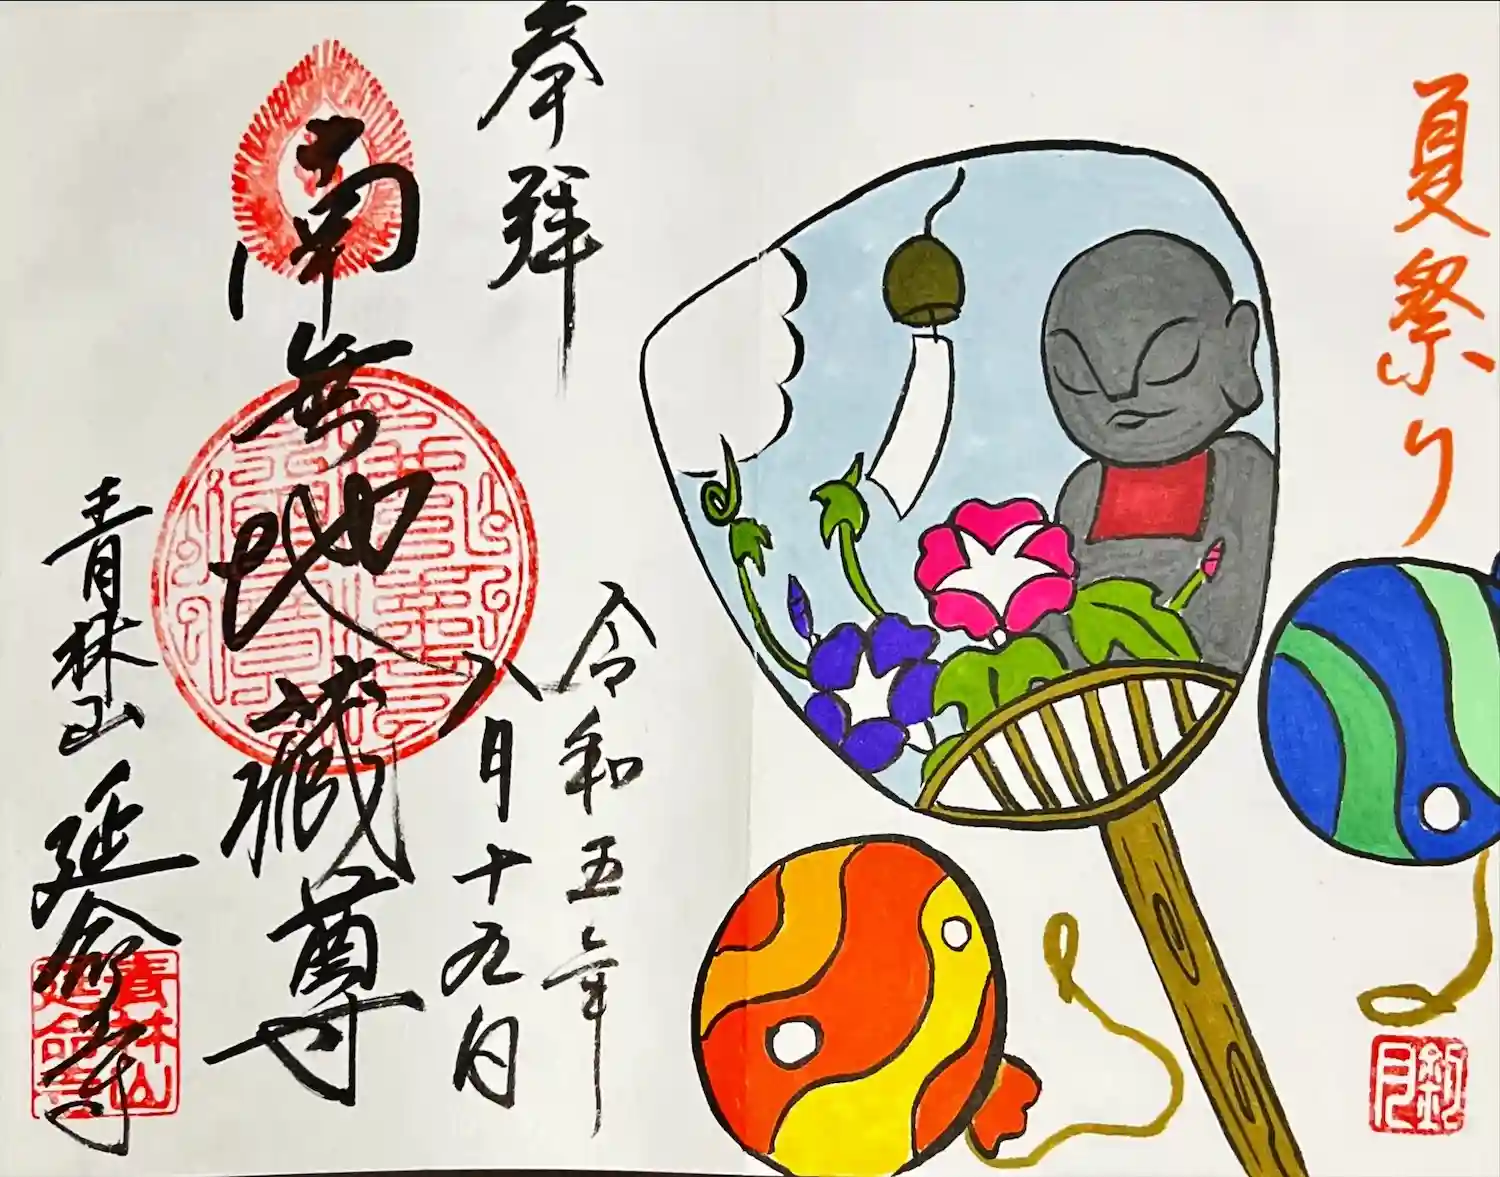 夏祭り
奉拜
令和五年
八月十九日
南無地蔵尊
青林山
延命寺
青林山
延命寺